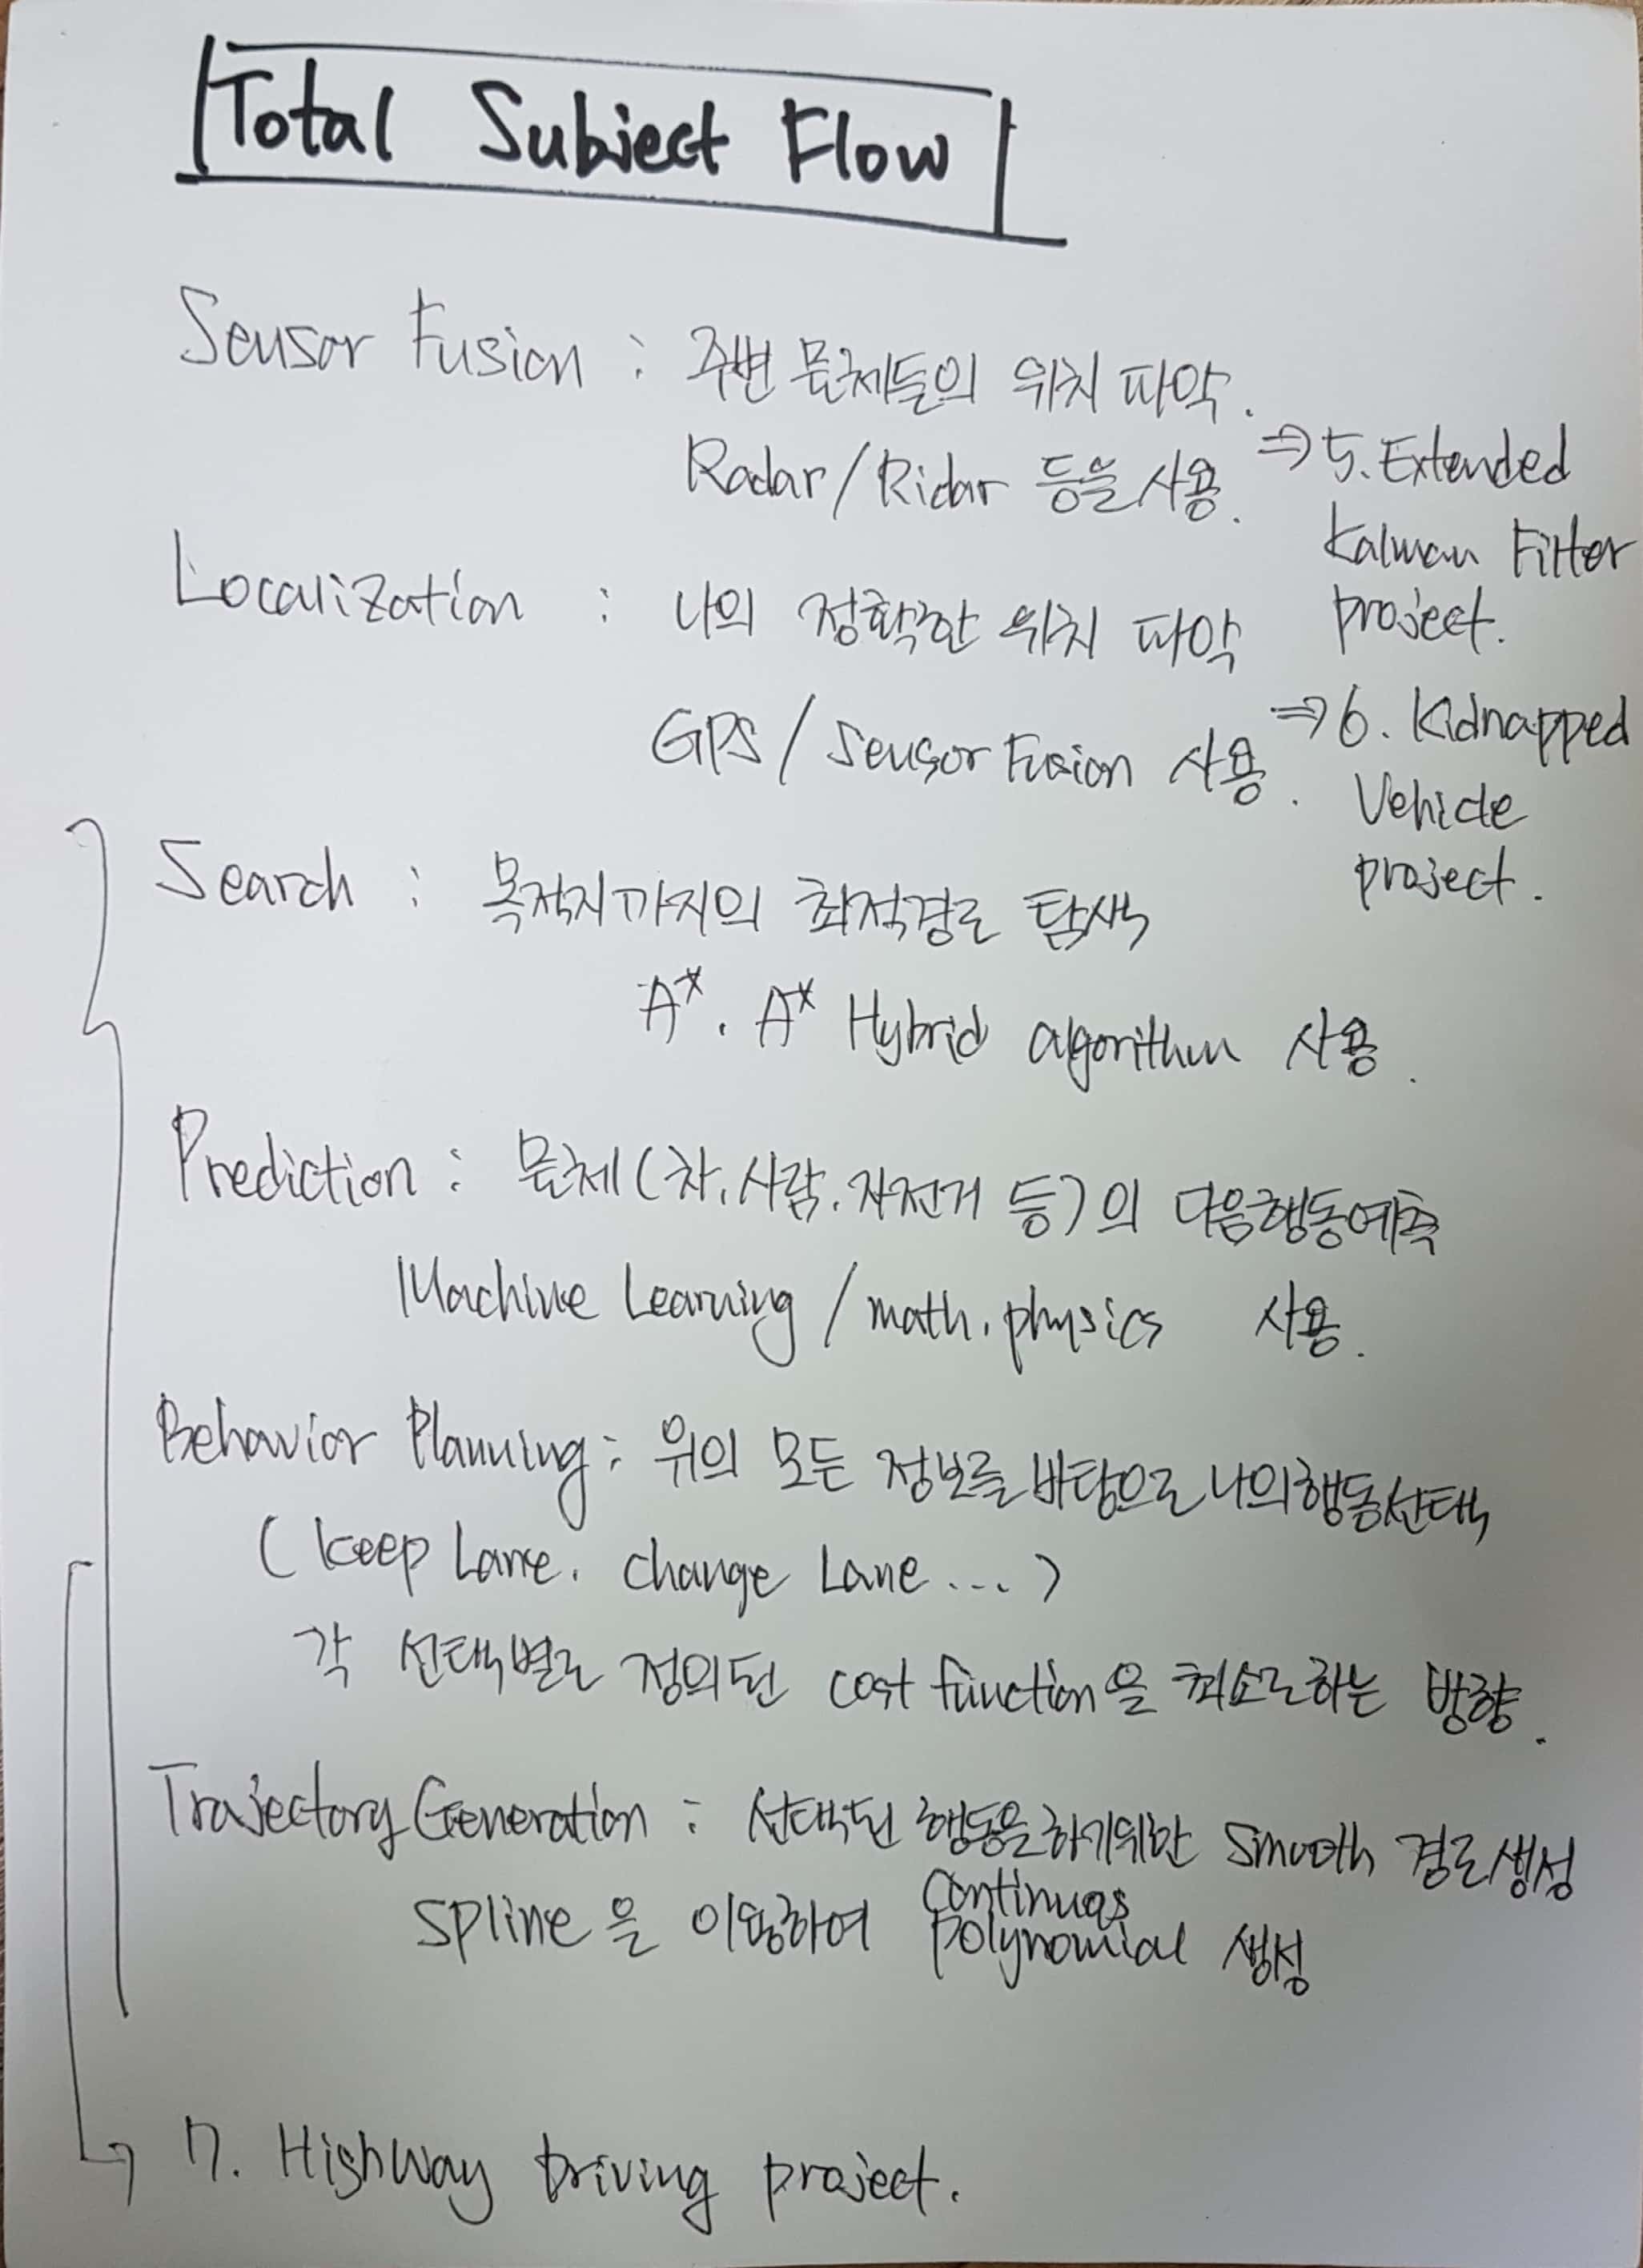 Total Subject Flow
Sensor Fusion : 주변 물체들의 위치 파악.
Radar/Ridar 등을 사용.
⇒ 5. Extended
Kalman Filter
project.
Localization : 나의 정확한 위치 파악
GPS / Sensor Fusion 사용.
⇒ 6. Kidnapped
Vehicle
project.
Search : 목적지까지의 최적경로 탐색
A*. A* Hybrid algorithm 사용.
Prediction : 물체(차.사람.자전거 등)의 다음행동예측
Machine Learning / math.physics 사용.
Behavior Planning : 위의 모든 정보를 바탕으로 나의행동선택
(keep Lane. change Lane ...)
각 선택별로 정의된 cost function을 최소로하는 방향.
Trajectory Generation : 선택된 행동을하기위한 smooth 경로생성
spline을 이용하여 continuos
polynomial 생성
7. Highway Driving project.